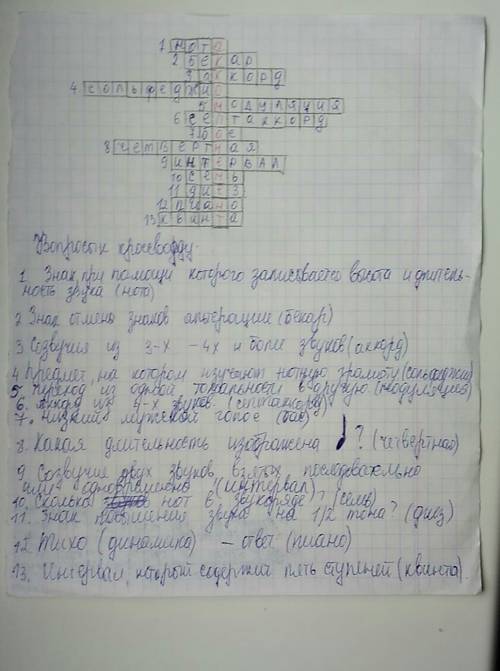 1 нота
2 бекар
3 аккорд
4 сольфеджио
5 модуляция
6 септаккорд
7 бас
8 четвертная
9 интервал
10 семь
11 диез
12 пиано
13 квинта
Вопросы к кроссворду.
1 Знак при помощи которого записывается высота и длитель-
ность звука (нота)
2 Знак отмены знаков альтерации (бекар)
3 Созвучия из 3-х - 4х и более звуков (аккорд)
4 Предмет, на котором изучают нотную грамоту (сольфеджио)
5. Переход из одной тональности в другую (модуляция)
6. Аккорд из 4-х звуков (септаккорд)
7. Низкий мужской голос (бас)
8. Какая длительность изображена ? (четвертная)
9 Созвучие двух звуков взятых последовательно
или одновременно (интервал)
10. Сколько нот в звукоряде? (семь)
11. Знак повышения звука на 1/2 тона? (диез)
12 Тихо (динамика) - ответ (пиано)
13. Интервал который содержит пять ступеней (квинта).